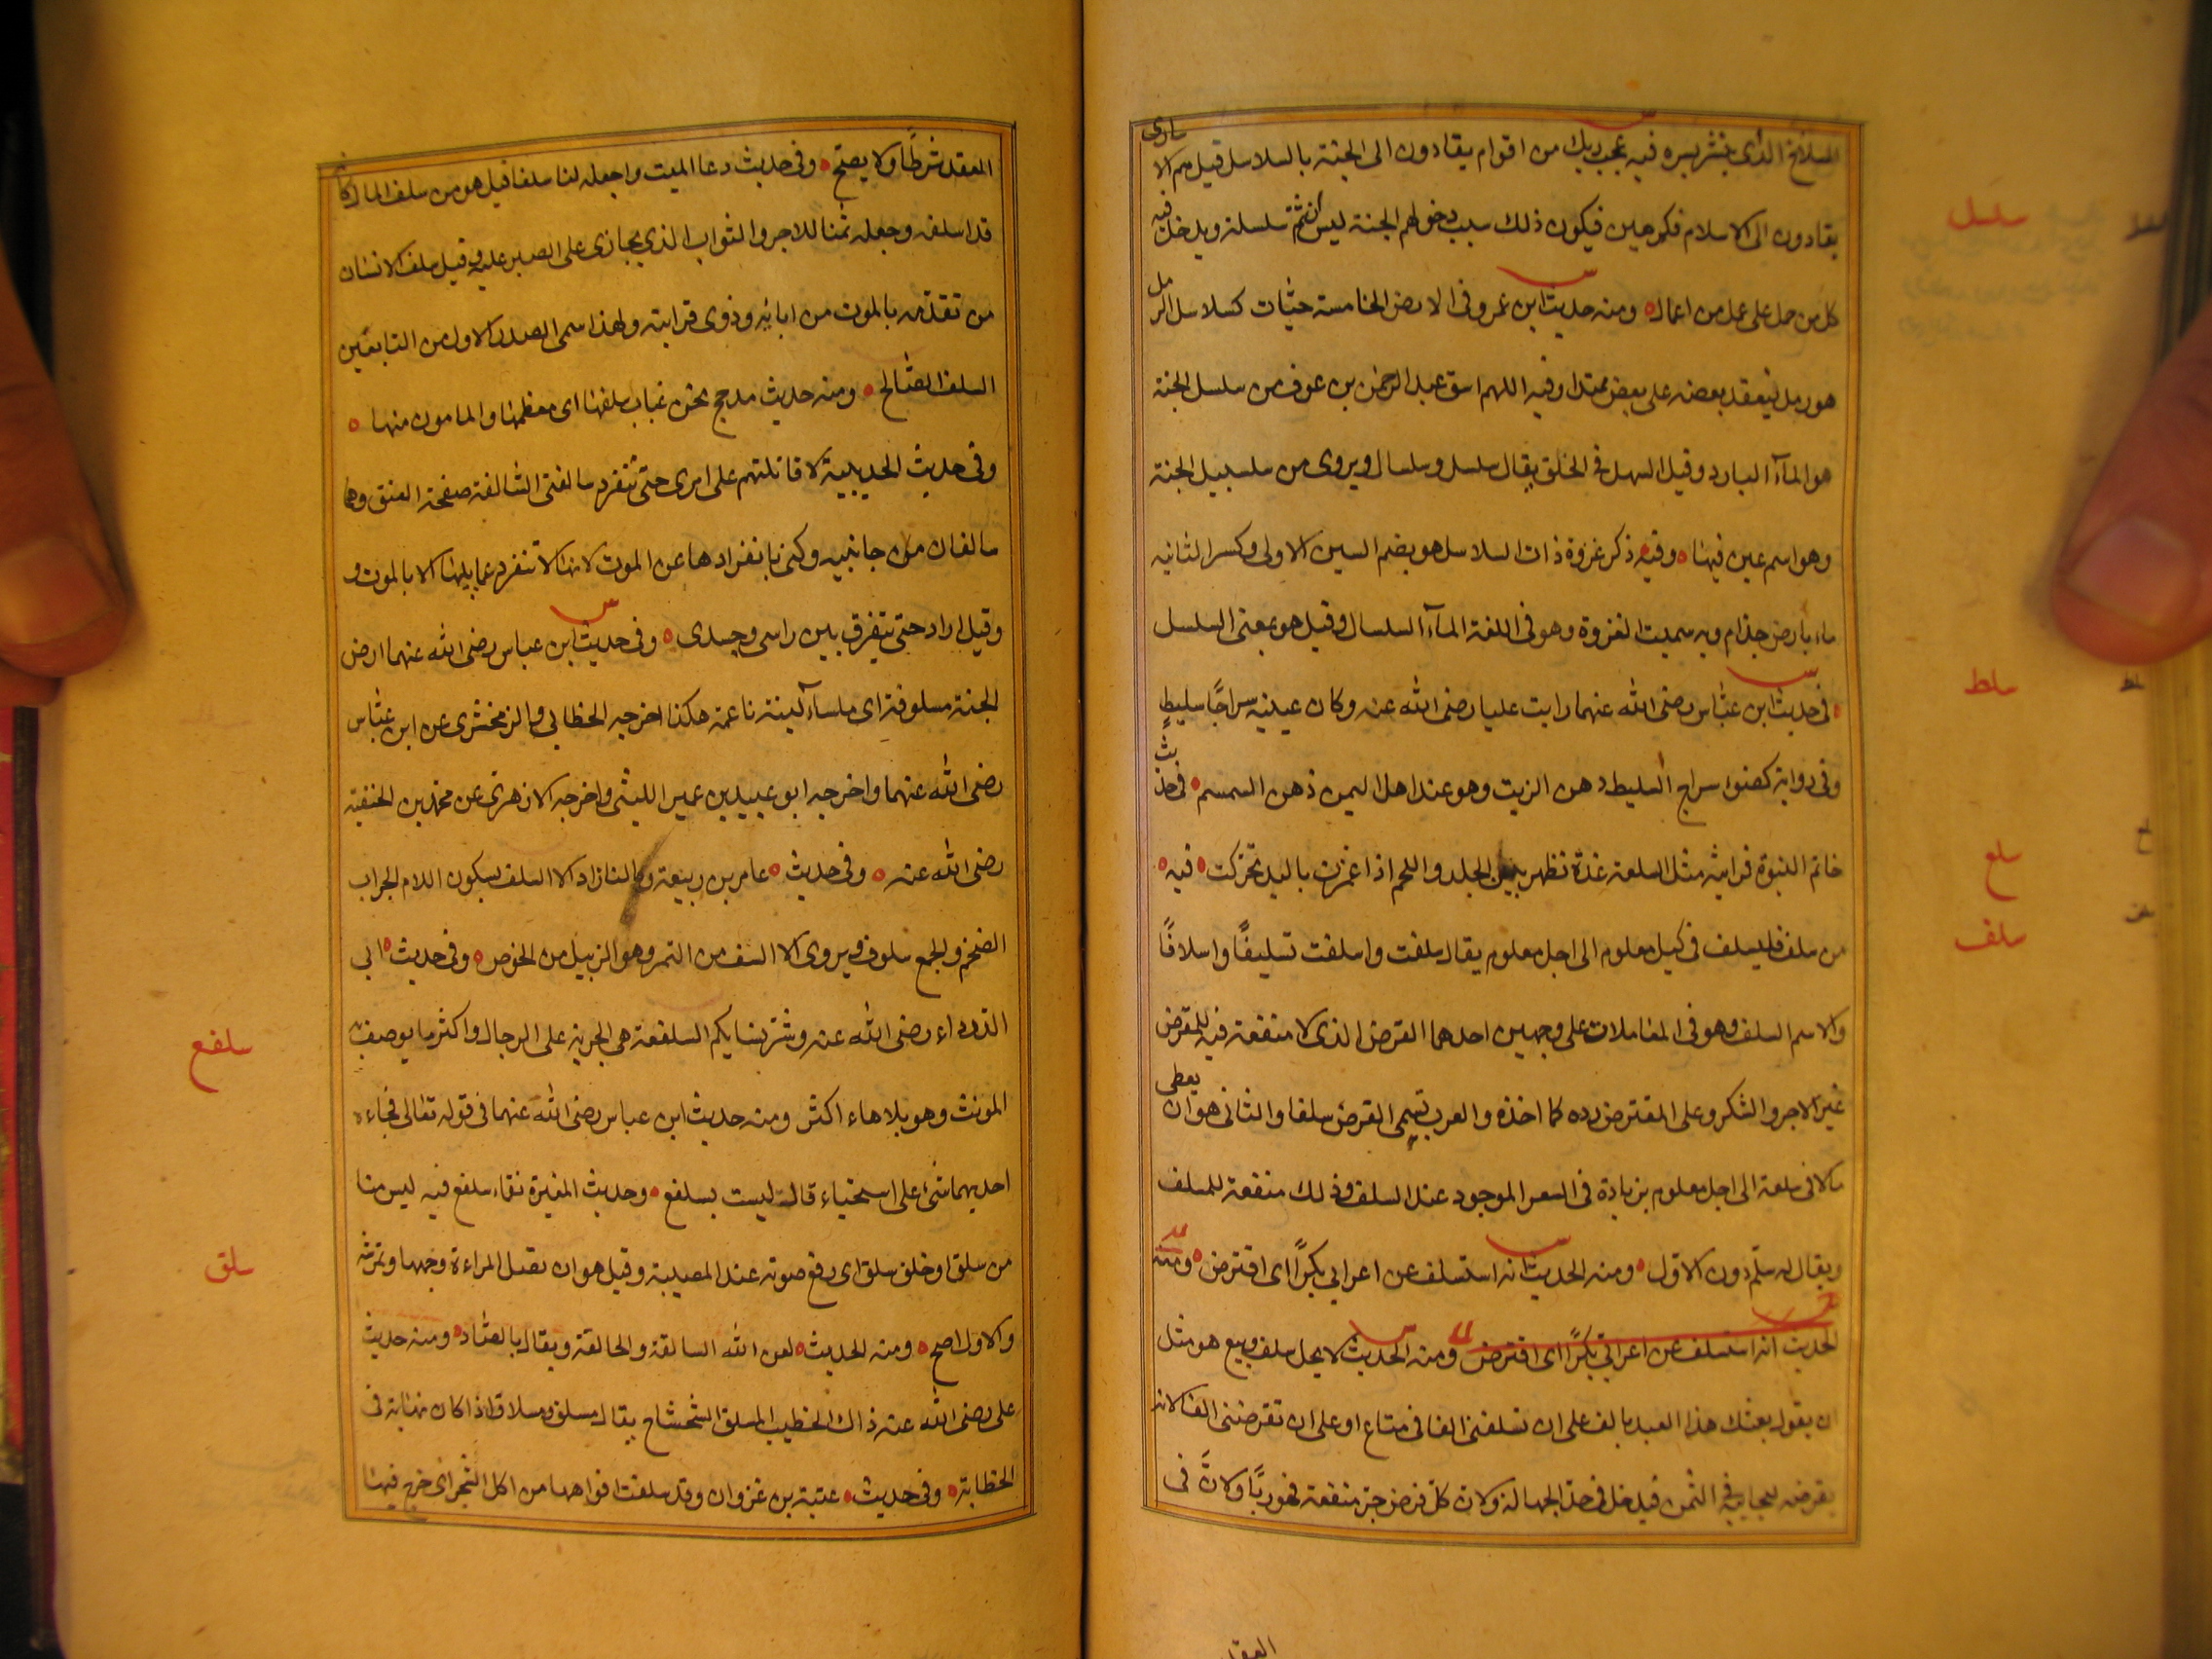 المسلاخ الذى ينتثر بسره فيه عجب ربك من اقوام يقادون الى الجنة بالسلاسل قيل هم الاسارى
يقادون الى الاسلام مكرهين فيكون ذلك سبب دخولهم الجنة ليس ان ثم سلسلة ويدخل فيه
كل من حمل على عمل من اعماله ومنه حديث ابن عمرو فى الارض الخامسة حيّات كسلاسل الرمل
هو رمل ينعقد بعضه على بعض ممتدا وفيه اللهم اسق عبد الرحمن بن عوف من سلسل الجنة
هو المآء البارد وقيل السهل فى الحلق يقال سلسل وسلسال ويروى من سلسبيل الجنة
وهو اسم عين فيها وفيه ذكر غزوة ذات السلاسل هو بضم السين الاولى وكسر الثانيه
ماء بارض جذام وبه سميت الغزوة وهو فى اللغة المآء السلسال وقيل هو بمعنى السلسل
سلسل
فى حديث ابن عبّاس رضى الله عنهما رايت عليا رضى الله عنه وكان عينيه سراجًا سليطٍ
سلط
وفى رواية كضوء سراج السليط دهن الزيت وهو عند اهل اليمن دهن السمسم فى حديث
خاتم النبوة فرايته مثل السلعة غدة تظهر بين الجلد واللحم اذا غمزت باليد تحركت فيه
سلع
من سلف فليسلف فى كيل معلوم الى اجل معلوم يقال سلفت واسلفت تسليفًا واسلافًا
سلف
والاسم السلف وهو فى المعاملات على وجهين احدهما القرض الذى لا منفعة فيه للمقرض
غير الاجر والشكر وعلى المقترض رده كما اخذه والعرب تسمى القرض سلفا والثانى هو ان يعطى
مالا فى سلعة الى اجل معلوم بزيادة فى السعر الموجود عند السلف وذلك منفعة للمسلف
ويقال له سلم دون الاول ومنه الحديث انه استسلف عن اعرابي بكرًا اى اقترض ومنه
الحديث انه استسلف عن اعرابي بكرًا اى اقترض ومنه الحديث لا يحل سلف وبيع هو مثل
ان يقول بعتك هذا العبد بالف على ان تسلفنى الفا فى متاع او على ان تقرضنى الفا لانه
يقرضه ليحابيه فى الثمن فيدخل فى حدّ الجهالة ولان كل قرض جرّ منفعة فهو ربًا ولانّ فى
العقد
العقد شرطًا ولا يصحّ وفى حديث دعا الميت واجعله لنا سلفا قيل هو من سلف المال كانه
قد اسلفه وجعله ثمنا للاجر والثواب الذي يجازى على الصبر عليه وقيل سلف الانسان
من تقدّمه بالموت من ابائه وذوى قرابته ولهذا سمى الصدر الاول من التابعين
السلف الصالح ومنه حديث مذحج نحن عباب سلفها اى معظمها والمامون منها
وفى حديث الحديبية لاقاتلنهم على امرى حتى تنفرد سالفتى السالفة صفحة العنق وهما
سالفتان من جانبيه وكنى بانفرادها عن الموت لانها لا تنفرد عما يليها الا بالموت و
وقيل اراد حتى يتفرق بين راسى وجسدى وفى حديث ابن عباس رضى الله عنهما ارض
الجنة مسلوفة اى ملساء لينة ناعمة هكذا اخرجه الخطابي والزمخشرى عن ابن عبّاس
رضى الله عنهما واخرجه ابو عبيد بن عمير الليثى واخرجه الازهرى عن محمد بن الحنفية
رضى الله عنه وفى حديث عامر بن ربيعة ومالنا زاد الا السلف بسكون اللام الجراب
الضخم والجمع سلوف ويروى الا السف من التمر وهو الزبيل من الخوص وفى حديث ابي
الدرداء رضى الله عنه وشرّ نسايكم السلفعة هى الجرية على الرجال واكثر ما يوصف به
سلفع
المونث وهو بلا هاء اكثر ومنه حديث ابن عباس رضى الله عنهما فى قوله تعالى فجاءه
احديهما تمشى على استحياء قال ليست بسلفع وحديث المغيرة فقماء سلفع فيه ليس منا
من سلق او حلق سلق اى رفع صوته عند المصيبة وقيل هو ان تصك المراءة وجهها وتمرشه
سلق
والاول اصح ومنه الحديث لعن الله السالقة والحالقة ويقال بالصّاد ومنه حديث
على رضى الله عنه ذاك الخطيب المسلق الشحشاح يقال مسلق ومسلاق اذا كان نهاية فى
الخطابة وفى حديث عتبة بن غزوان وقد سلقت افواهها من اكل الشجر اى خرج فيها